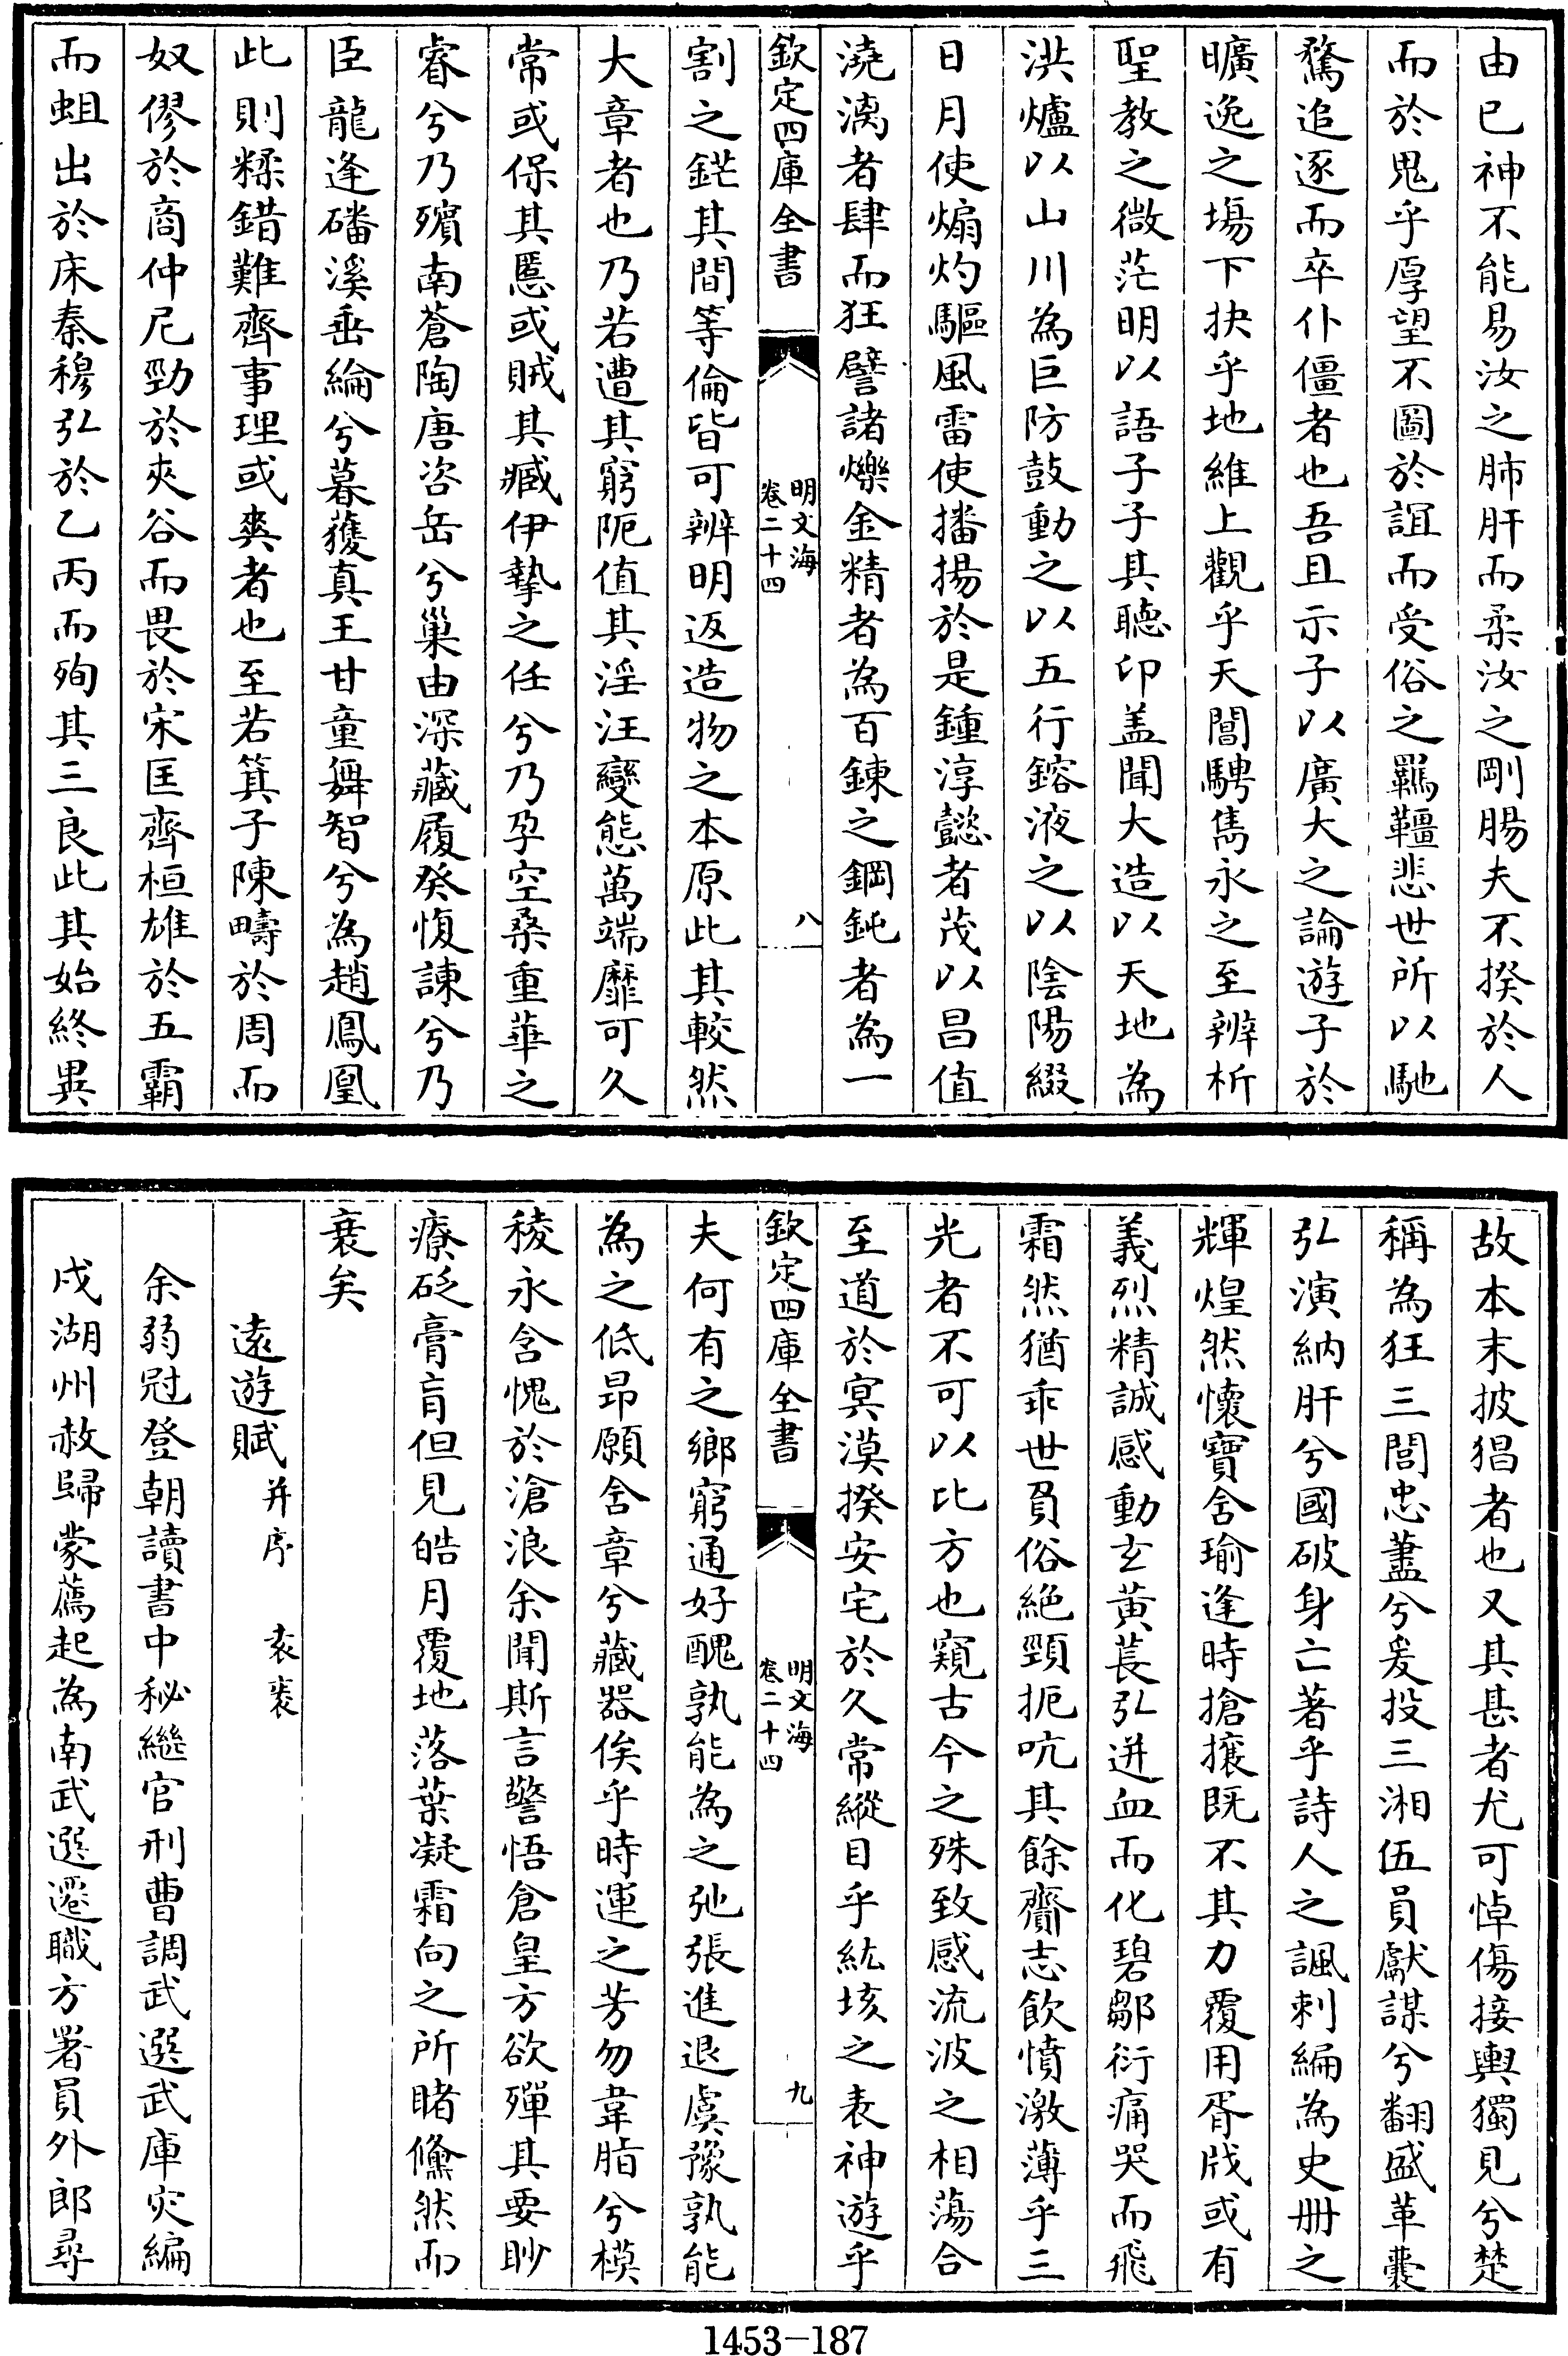 由已神不能易汝之肺肝而柔汝之剛腸夫不揆於人
而於鬼乎厚望不圖於誼而受俗之羈韁悲世所以馳
騖追逐而卒仆僵者也吾且示子以廣大之論遊子於
曠逸之塲下抉乎地維上觀乎天閶騁雋永之至辨析
聖教之微茫明以語子子其聽卬盖聞大造以天地為
洪爐以山川為巨防鼓動之以五行鎔液之以陰陽綴
日月使煽灼驅風雷使播揚於是鍾淳懿者茂以昌值
澆漓者肆而狂譬諸爍金精者為百鍊之鋼鈍者為一
欽定四庫全書
明文海
卷二十四
八
割之鋩其間等倫皆可辨明返造物之本原此其較然
大章者也乃若遭其窮阨值其淫汪變態萬端靡可久
常或保其慝或賊其臧伊摯之任兮乃孕空桑重華之
睿兮乃殯南蒼陶唐咨岳兮巢由深藏履癸愎諫兮乃
臣龍逢磻溪垂綸兮暮獲真王甘童舞智兮為趙鳳凰
此則糅錯難齊事理或爽者也至若箕子陳疇於周而
奴僇於商仲尼勁於夾谷而畏於宋匡齊桓雄於五霸
而蛆出於床秦穆弘於乙丙而殉其三良此其始終異
故本末披猖者也又其甚者尤可悼傷接輿獨見兮楚
稱為狂三閭忠藎兮爰投三湘伍員獻謀兮翻盛革囊
弘演納肝兮國破身亡著乎詩人之諷刺編為史册之
輝煌然懷寶舍瑜逢時搶攘既不其力覆用胥戕或有
義烈精誠感動玄黃萇弘迸血而化碧鄒衍痛哭而飛
霜然猶乖世負俗絶頸扼吭其餘齎志飲憤激薄乎三
光者不可以比方也窺古今之殊致感流波之相蕩合
至道於冥漠揆安宅於久常縱目乎紘垓之表神遊乎
欽定四庫全書
明文海
卷二十四
九
夫何有之鄉窮通好醜孰能為之弛張進退虞豫孰能
為之低昂願含章兮藏器俟乎時運之芳勿韋脂兮模
稜永含愧於滄浪余聞斯言警悟倉皇方欲殫其要眇
療砭膏肓但見皓月覆地落葉凝霜向之所睹儵然而
衰矣
遠遊賦并序 袁袠
余弱冠登朝讀書中秘繼官刑曹調武選武庫灾編
戍湖州赦歸蒙薦起為南武選遷職方署員外郎尋
1453-187